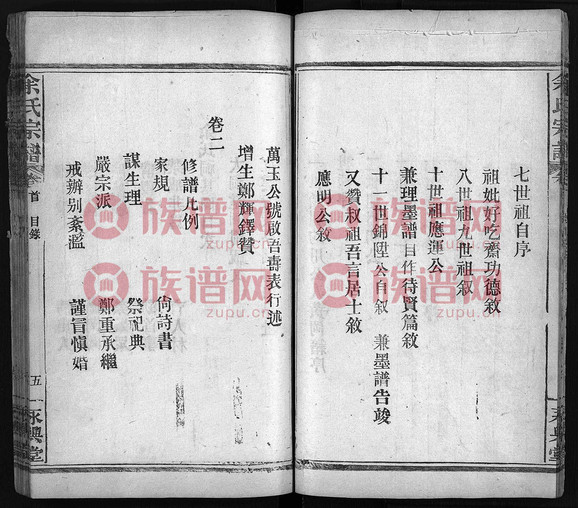 余氏宗譜
七世祖自序
祖妣好吃齋功德敘
八世祖九世祖敘
十世祖應運公
兼理墨譜目作待賢篇敘
十一世錦陞公自敘 兼墨譜告竣
又贊叔祖吾言居士敘
應明公敘
永興堂
萬玉公號啟吾壽表行述
增生鄭輝鐸贊
卷二
修譜凡例 尚詩書
家規 祭祀典
謀生理 鄭重承繼
嚴宗派 謹冒慎婚
戒辦別紊濫
余氏宗譜 卷首 目錄 五 永興堂
族谱网
zupu.cn
族谱网
zupu.cn
族谱网
zupu.cn
族谱网
zupu.cn